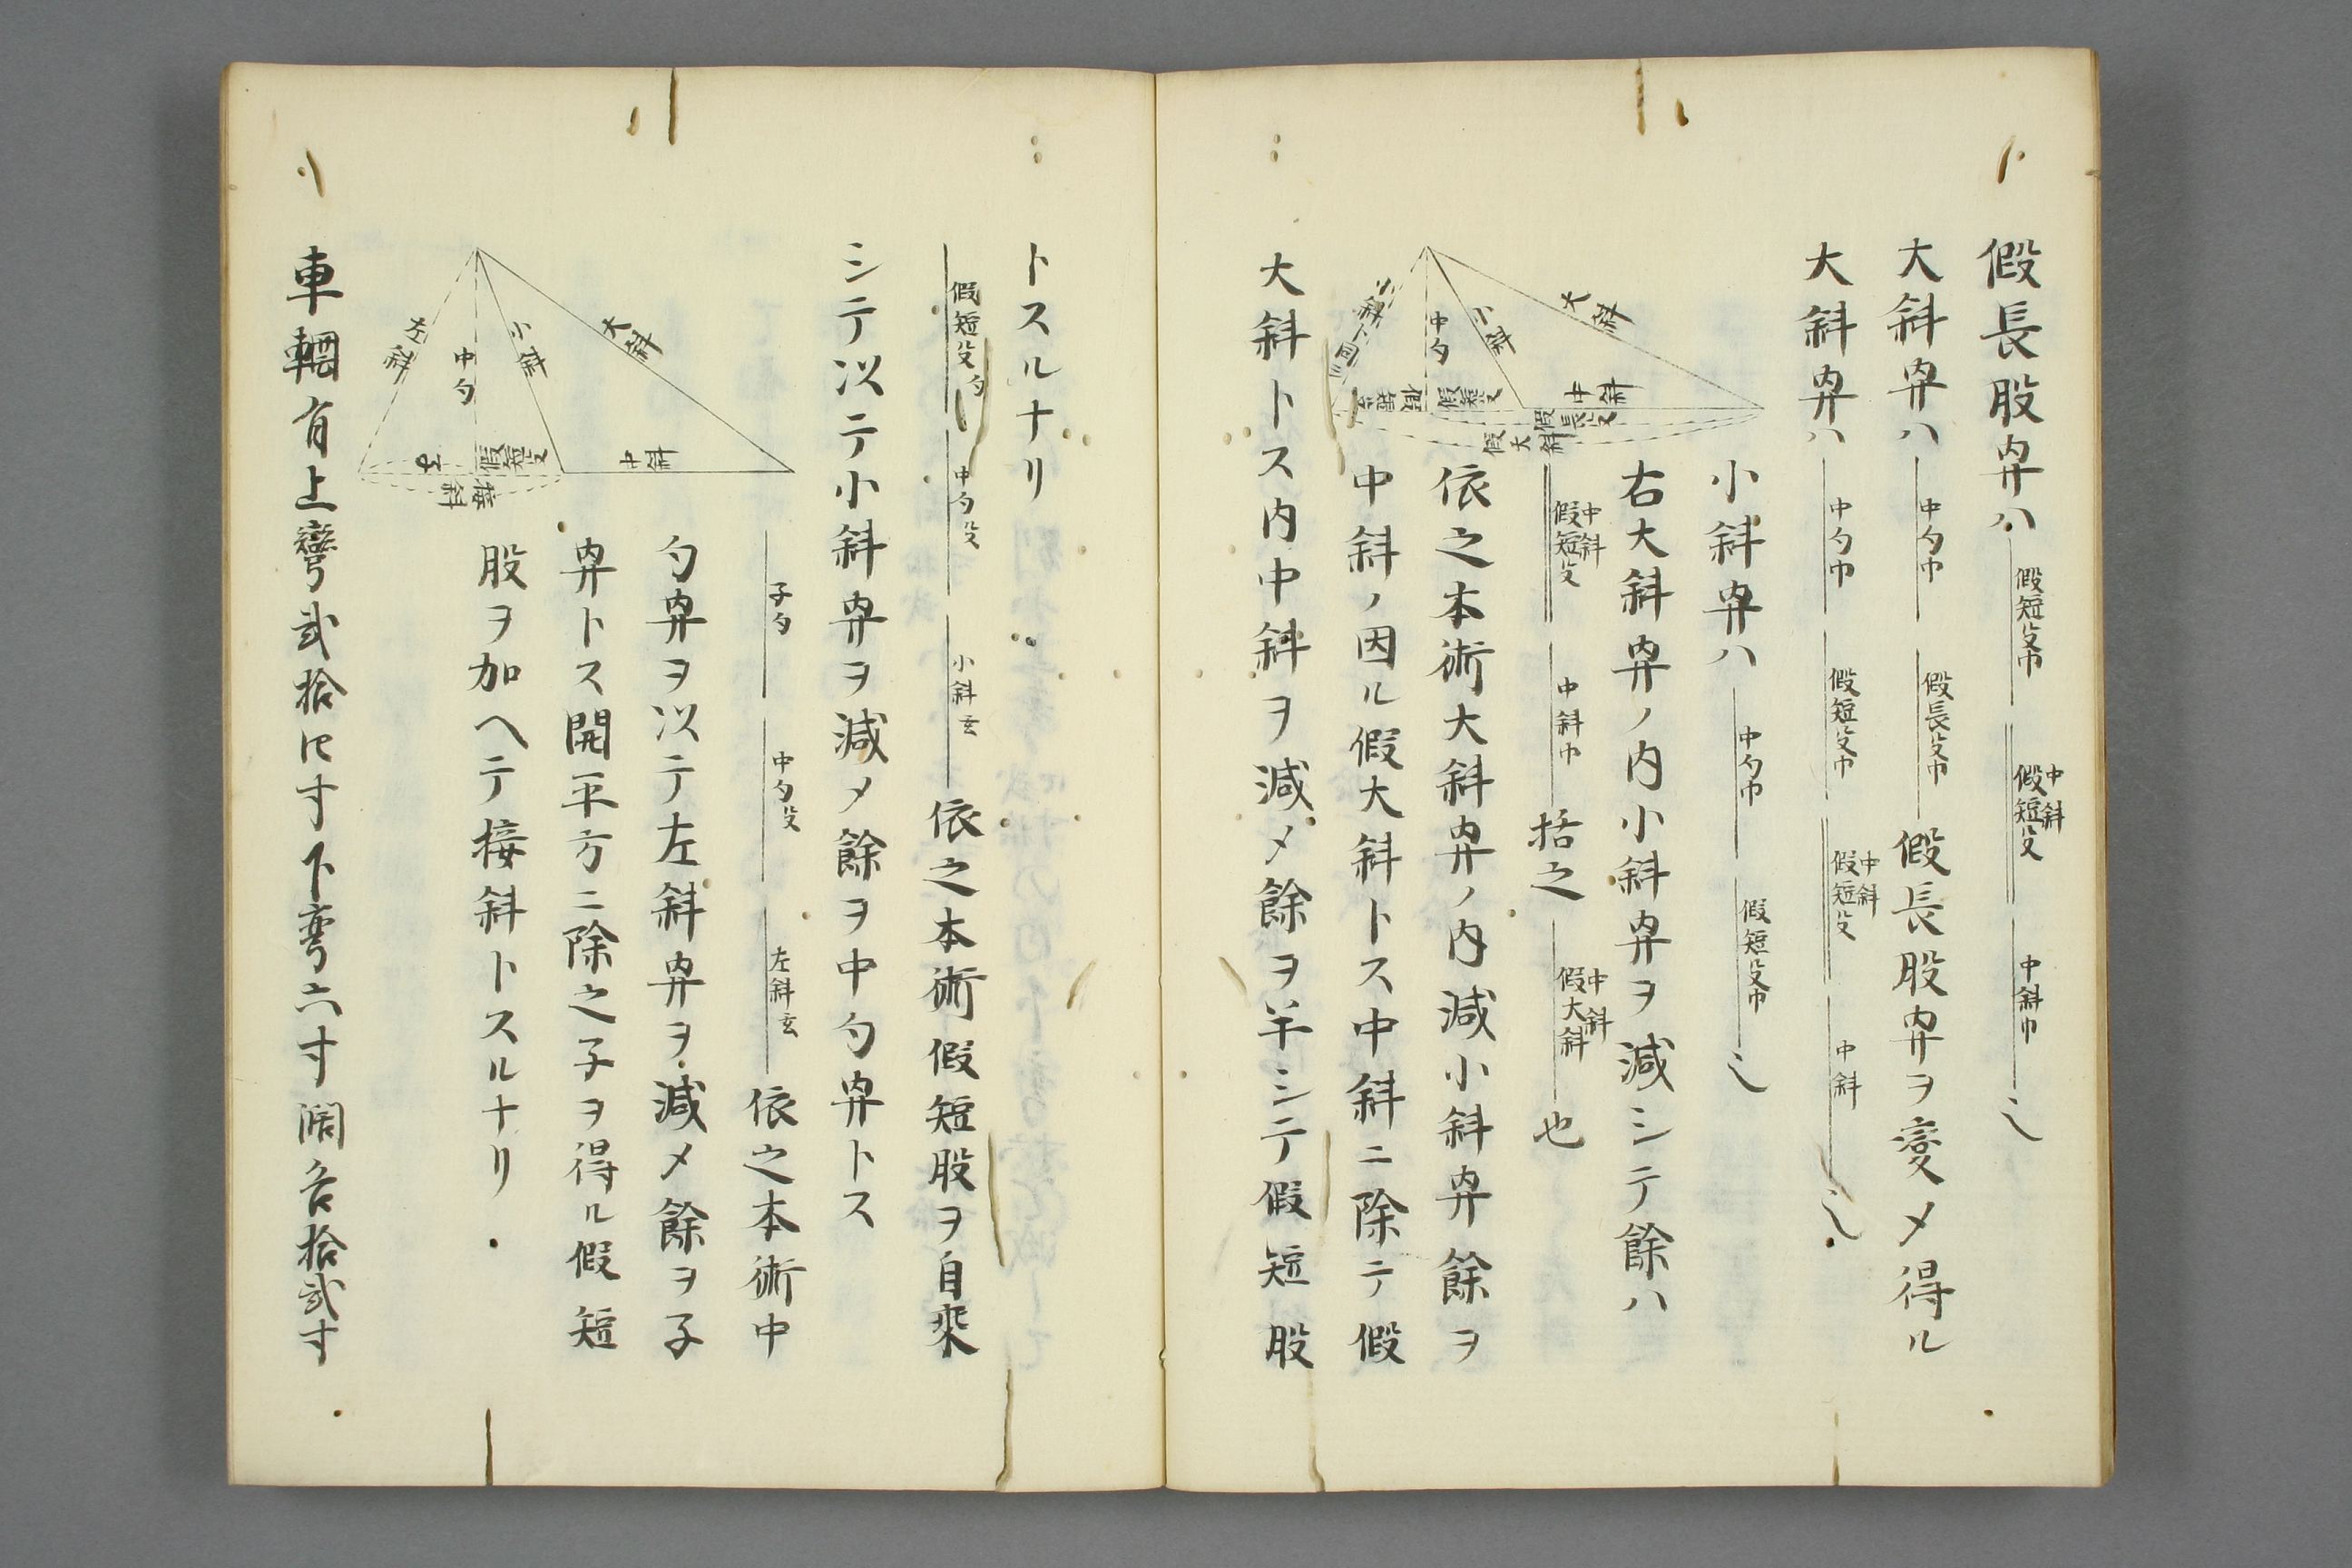 假長股冪ハ 假短殳巾 中斜假短殳 中斜巾 之
大斜冪ハ 中勾巾 假長殳巾 假長股冪ヲ変メ得ル
大斜冪ハ 中勾巾 假短殳巾 中斜假短殳 中斜 之
小斜冪ハ 中勾巾 假短殳巾 之
右大斜冪ノ内小斜冪ヲ減シテ餘ハ
中斜假短殳 中斜巾 括之 中斜假大斜 也
依之本術大斜冪ノ内減小斜冪餘ヲ
中斜ノ因ル假大斜トス中斜ニ除テ假
大斜トス内中斜ヲ減メ餘ヲ半シテ假短股
大斜
小斜
中勾
小斜ト同シ
中斜
假短殳
假長殳
假大斜
トスルナリ
假短殳勾 中勾殳 小斜玄 依之本術假短股ヲ自乘
シテ以テ小斜冪ヲ減メ餘ヲ中勾冪トス
子勾 中勾殳 左斜玄 依之本術中
勾冪ヲ以テ左斜冪ヲ減メ餘ヲ子
冪トス開平方ニ除之子ヲ得ル假短
股ヲ加ヘテ接斜トスルナリ
大斜
小斜
中勾
左斜
中斜
假短殳
子
接斜
車輞有上彎弐拾四寸下彎六寸濶各拾弐寸